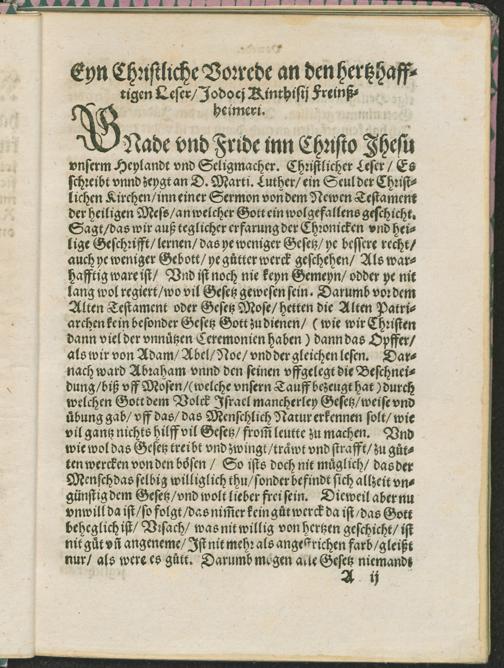 Eyn Christliche Vorrede an den hertzhaff⸗
tigen Leser/ Jodocj Kinthisij Freinß⸗
heimeri.
GNade vnd Fride inn Christo Jhesu
vnserm Heylandt vnd Seligmacher. Christlicher Leser/ Es
schreibt vnnd zeygt an D. Marti. Luther/ ein Seul der Christ⸗
lichen Kirchen/ inn einer Sermon von dem Newen Testament
der heiligen Mess/ an welcher Gott ein wolgefallens geschicht.
Sagt/ das wir auß teglicher erfarung der Chronicken vnd hei⸗
lige Geschrifft/ lernen/ das ye weniger Gesetz/ ye bessere recht/
auch ye weniger Gebott/ ye gütter werck geschehen/ Als war⸗
hafftig ware ist/ Vnd ist noch nie keyn Gemeyn/ odder ye nit
lang wol regiert/ wo vil Gesetz gewesen sein. Darumb vor dem
Alten Testament oder Gesetz Mose/ hetten die Alten Patri⸗
archen kein besonder Gesetz Gott zu dienen/ ( wie wir Christen
dann viel der vnnützen Ceremonien haben ) dann das Opffer/
als wir von Adam/ Abel/ Noe/ vnd der gleichen lesen. Dar⸗
nach ward Abraham vnnd den seinen vffgelegt die Beschnei⸗
dung/ biß vff Mosen/ (welche vnsern Tauff bezeugt hat) durch
welchen Gott dem Volck Israel mancherley Gesetz/ weise vnd
übung gab/ vff das/ das Menschlich Natur erkennen solt/ wie
vil gantz nichts hilff vil Gesetz/ from̃ leutte zu machen. Vnd
wie wol das Gesetz treibt vnd zwingt/ träwt vnd strafft/ zu güt⸗
ten wercken von den bösen/ So ists doch nit müglich/ das der
Mensch das selbig williglich thu/ sonder befindt sich allzeit vn⸗
günstig dem Gesetz/ vnd wolt lieber frei sein. Dieweil aber nu
vnwill da ist/ so folgt/ das nim̃er kein güt werck da ist/ das Gott
beheglich ist/ Vrsach/ was nit willig von hertzen geschicht/ ist
nit güt vñ angeneme/ Ist nit mehr als angestrichen farb/ gleißt
nur/ als were es gütt. Darumb mögen alle Gesetz niemandt
A ij